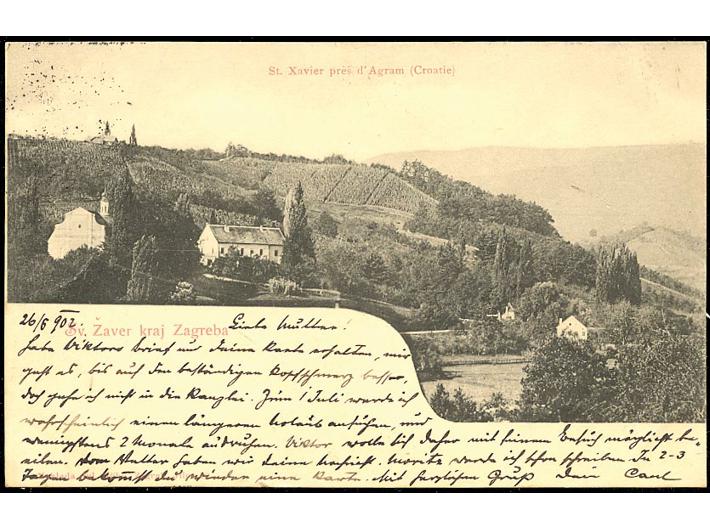 St. Xavier près d'Agram (Croatie)
Sv. Žaver kraj Zagreba
26/6 902 Liebe Mutter!
Habe Viktors Brief und Deine Karte erhalten, mir
geht es, bis auf den beständigen Kopfschmerz besser,
doch gehe ich nicht in die Kanzlei. Zum 1 Juli werde ich
wahrscheinlich einen längeren Urlaub ansuchen, und
wenigstens 2 Monate ausruhen. Viktor wolle bis daher mit seinem Besuch möglichst be-
eilen. Vom Vetter haben wir keine Nachricht. Moritz werde ich schon schreiben. In 2-3
Tagen bekommst du wieder eine Karte. Mit herzlichem Gruß Dein Carl